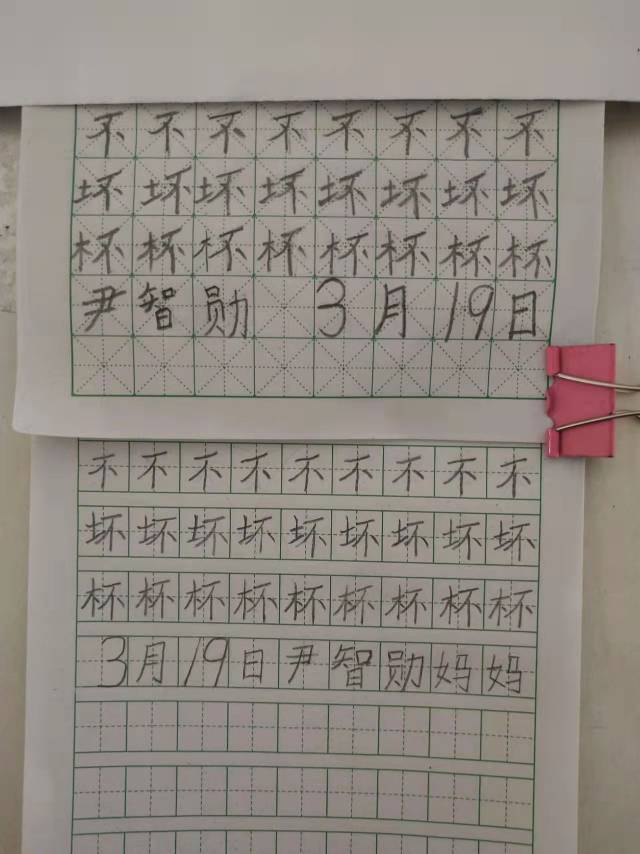 不不不不不不不不
坏坏坏坏坏坏坏坏
杯杯杯杯杯杯杯杯
尹智勋 3月19日
不不不不不不不不不
坏坏坏坏坏坏坏坏坏
杯杯杯杯杯杯杯杯杯
3月19日尹智勋妈妈